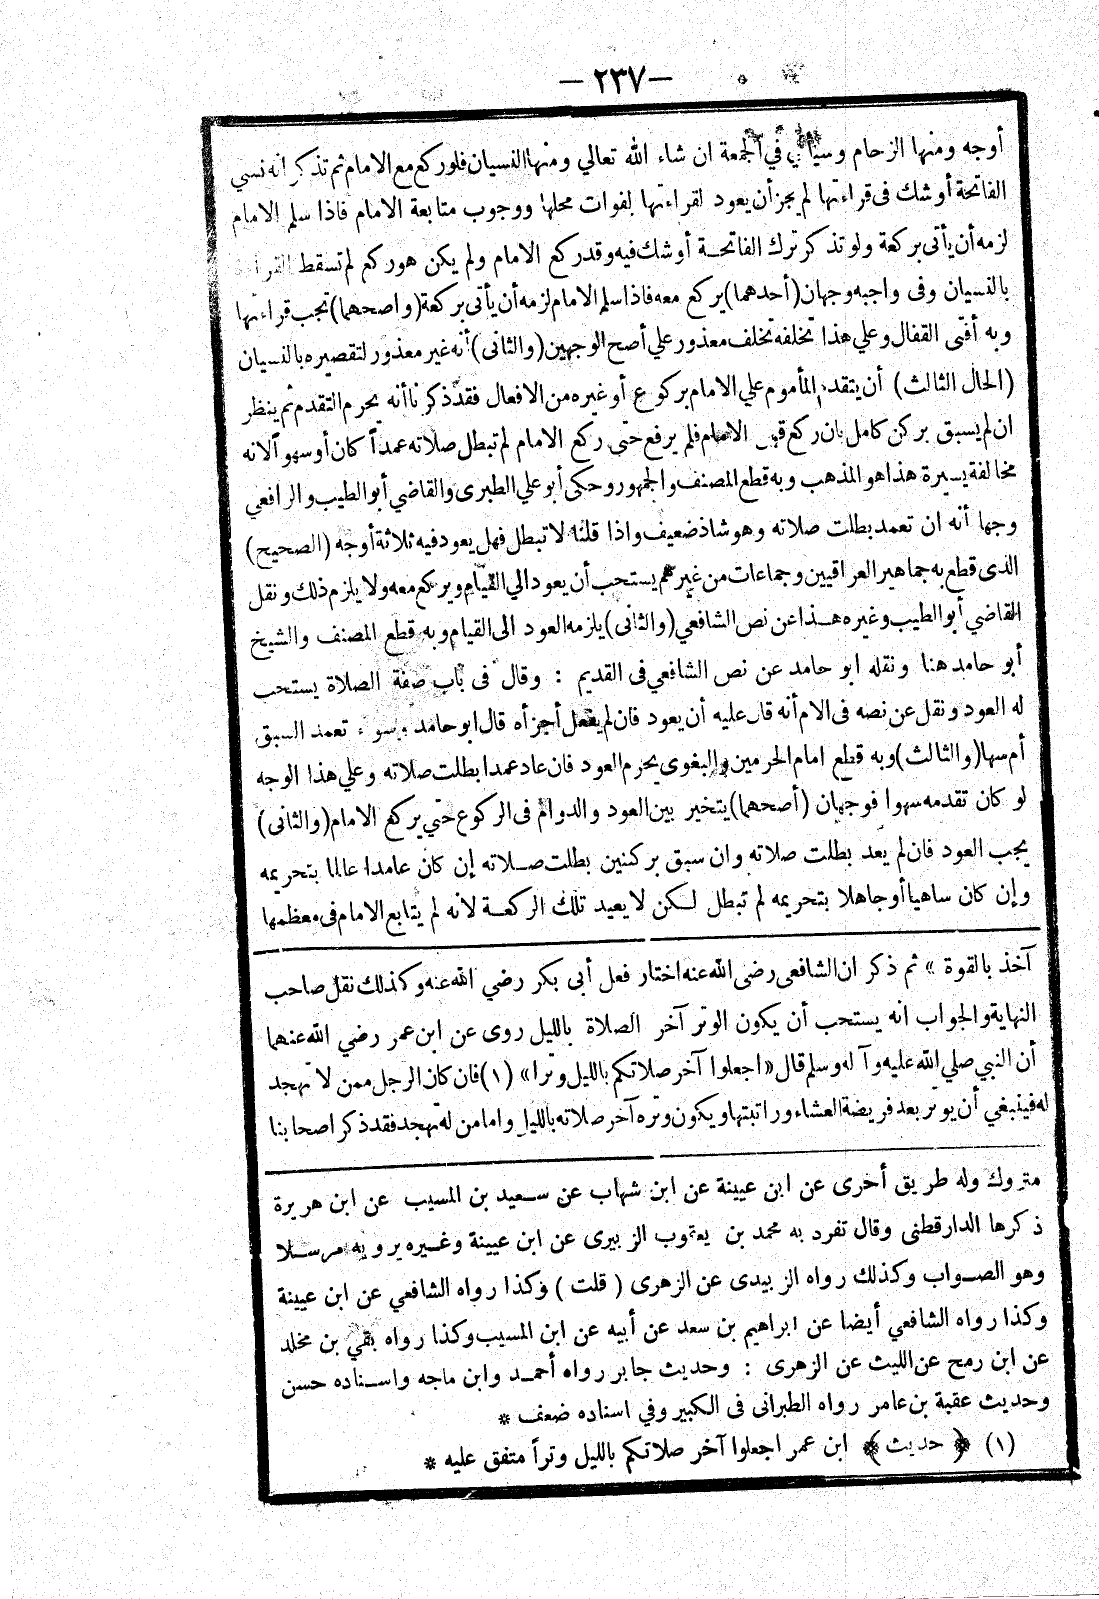 — ٢٣٧ —
أوجه ومنها الزحام وسيأتي في الجمعة ان شاء الله تعالي ومنها النسيان فلو ركع مع الامام ثم تذكر انه نسي
الفاتحة أو شك فى قراءتها لم يجز أن يعود لقراءتها لفوات محلها ووجوب متابعة الامام فاذا سلم الامام
لزمه أن يأتى بركعة ولو تذكر ترك الفاتحــة أو شك فيه وقد ركع الامام ولم يكن هو ركع لم تسقط القراءة
بالنسيان وفى واجبه وجهان (أحدهما) يركع معه فاذا سلم الامام لزمه أن يأتى بركعة (واصحهما) تجب قراءتها
وبه أفتى القفال وعلي هذا تخلفه تخلف معذور علي أصح الوجهين (والثانى) أنه غير معذور لتقصيره بالنسيان
(الحال الثالث) أن يتقدم المأموم علي الامام بركوع أو غيره من الافعال فقد ذكرنا أنه يحرم التقدم ثم ينظر
ان لم يسبق بركن كامل بان ركع قبل الامام فلم يرفع حتى ركع الامام لم تبطل صلاته عمداً كان أو سهواً لانه
مخالفة يسيرة هذا هو المذهب وبه قطع المصنف والجمهور وحكى أبو علي الطبرى والقاضي أبو الطيب والرافعي
وجها أنه ان تعمد بطلت صلاته وهو شاذ ضعيف واذا قلنا لا تبطل فهل يعود فيه ثلاثة أوجه (الصحيح)
الذى قطع به جماهير العراقيين وجماعات من غيرهم يستحب أن يعود الي القيام ويركع معه ولا يلزم ذلك ونقل
القاضي أبو الطيب وغيره هــذا عن نص الشافعي (والثانى) يلزمه العود الى القيام وبه قطع المصنف والشيخ
أبو حامد هنا ونقله ابو حامد عن نص الشافعي فى القديم : وقال فى باب صفة الصلاة يستحب
له العود ونقل عن نصه فى الام أنه قال عليه أن يعود فان لم يفعل أجزأه قال ابو حامد وسواء تعمد السبق
أم سها (والثالث) وبه قطع امام الحرمين والبغوى يحرم العود فان عاد عمدا بطلت صلاته وعلي هذا الوجه
لو كان تقدمه سهوا فوجهان (أصحهما) يتخير بين العود والدوام فى الركوع حتي يركع الامام (والثانى)
يجب العود فان لم يعد بطلت صلاته وان سبق بركنين بطلت صــلاته إن كان عامدا عالما بتحريمه
وإن كان ساهيا أو جاهلا بتحريمه لم تبطل لــكن لا يعيد تلك الركعــة لانه لم يتابع الامام فى معظمها
آخذ بالقوة » ثم ذكر ان الشافعى رضى الله عنه اختار فعل أبى بكر رضي الله عنه وكذلك نقل صاحب
النهاية والجواب انه يستحب أن يكون الوتر آخر الصلاة بالليل روى عن ابن عمر رضي الله عنهما
أن النبي صلي الله عليه وآله وسلم قال « اجعلوا آخر صلاتكم بالليل وترا » (١) فان كان الرجل ممن لا تهجد
له فينبغي أن يوتر بعد فريضة العشاء وراتبتها ويكون وتره آخر صلاته بالليل واما من له تهجد فقد ذكر اصحابنا
متروك وله طريق أخرى عن ابن عيينة عن ابن شهاب عن ســعيد بن المسيب عن ابن هريرة
ذكرها الدارقطنى وقال تفرد به محمد بن يعقوب الزبيرى عن ابن عيينة وغــيره يرويه مرســلا
وهو الصــواب وكذلك رواه الزبيدى عن الزهرى ( قلت ) وكذا رواه الشافعي عن ابن عيينة
وكذا رواه الشافعي أيضا عن ابراهيم بن سعد عن أبيه عن ابن المسيب وكذا رواه بقي بن مخلد
عن ابن رمح عن الليث عن الزهرى : وحديث جابر رواه أحمــد وابن ماجه واســناده حسن
وحديث عقبة بن عامر رواه الطبرانى فى الكبير وفي اسناده ضعف *
(١) ﴿ حديث ﴾ ابن عمر اجعلوا آخر صلاتكم بالليل وتراً متفق عليه *